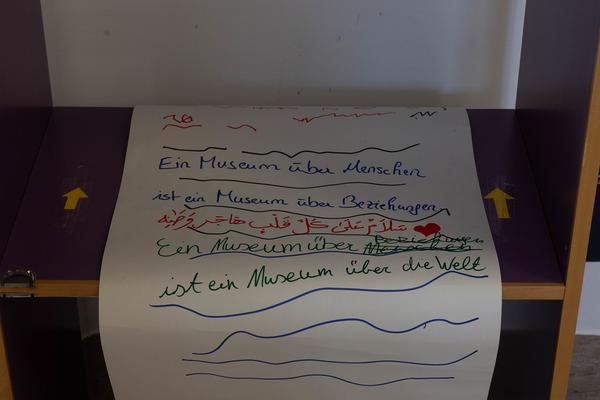 Ein Museum über Menschen
ist ein Museum über Beziehungen
سَلَامٌ عَلَىٰ كُلِّ قَلْبٍ هَاجَرَ
Ein Museum über Beziehungen
ist ein Museum über die Welt